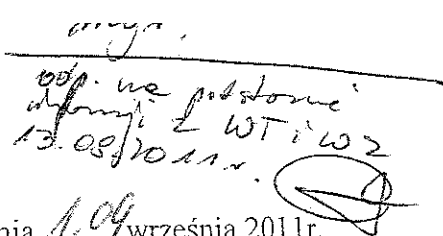 odp. na podstawie
informacji z WT i WZ
13.09.2011 r.
nia 1.09 września 2011r.